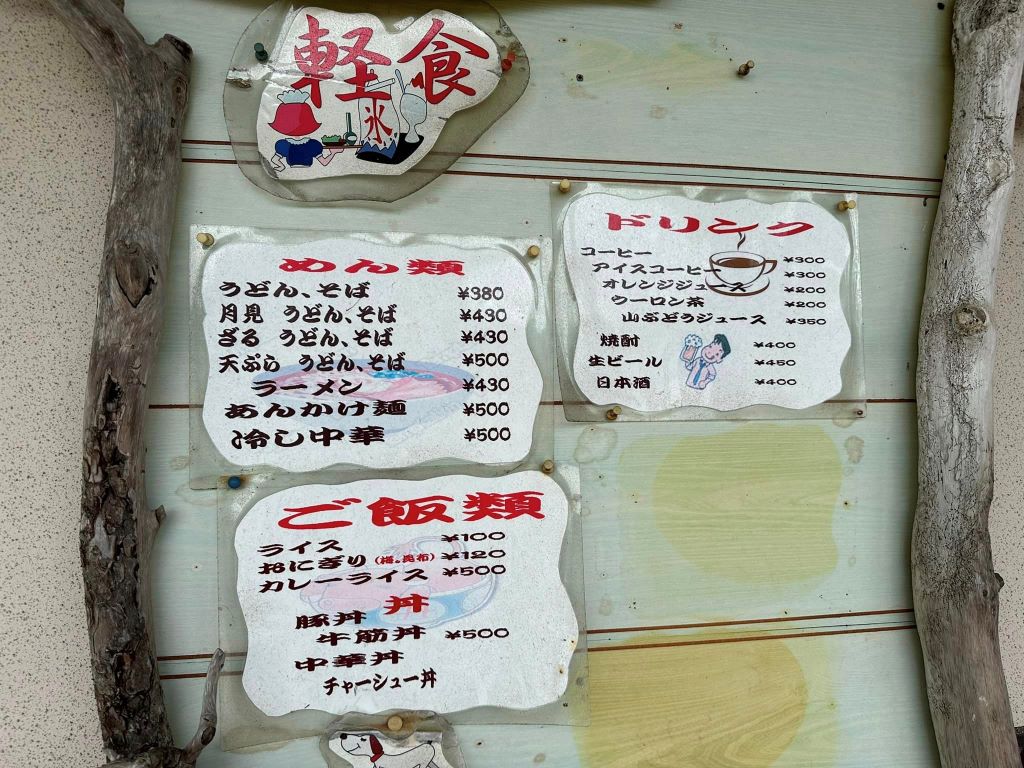 軽食
氷
めん類
うどん、そば ¥380
月見 うどん、そば ¥430
ざる うどん、そば ¥430
天ぷら うどん、そば ¥500
ラーメン ¥430
あんかけ麺 ¥500
冷し中華 ¥500
ドリンク
コーヒー ¥300
アイスコーヒー ¥300
オレンジジュース ¥200
ウーロン茶 ¥200
山ぶどうジュース ¥350
焼酎 ¥400
生ビール ¥450
日本酒 ¥400
ご飯類
ライス ¥100
おにぎり(梅。昆布) ¥120
カレーライス ¥500
丼
豚丼
牛筋丼 ¥500
中華丼
チャーシュー丼